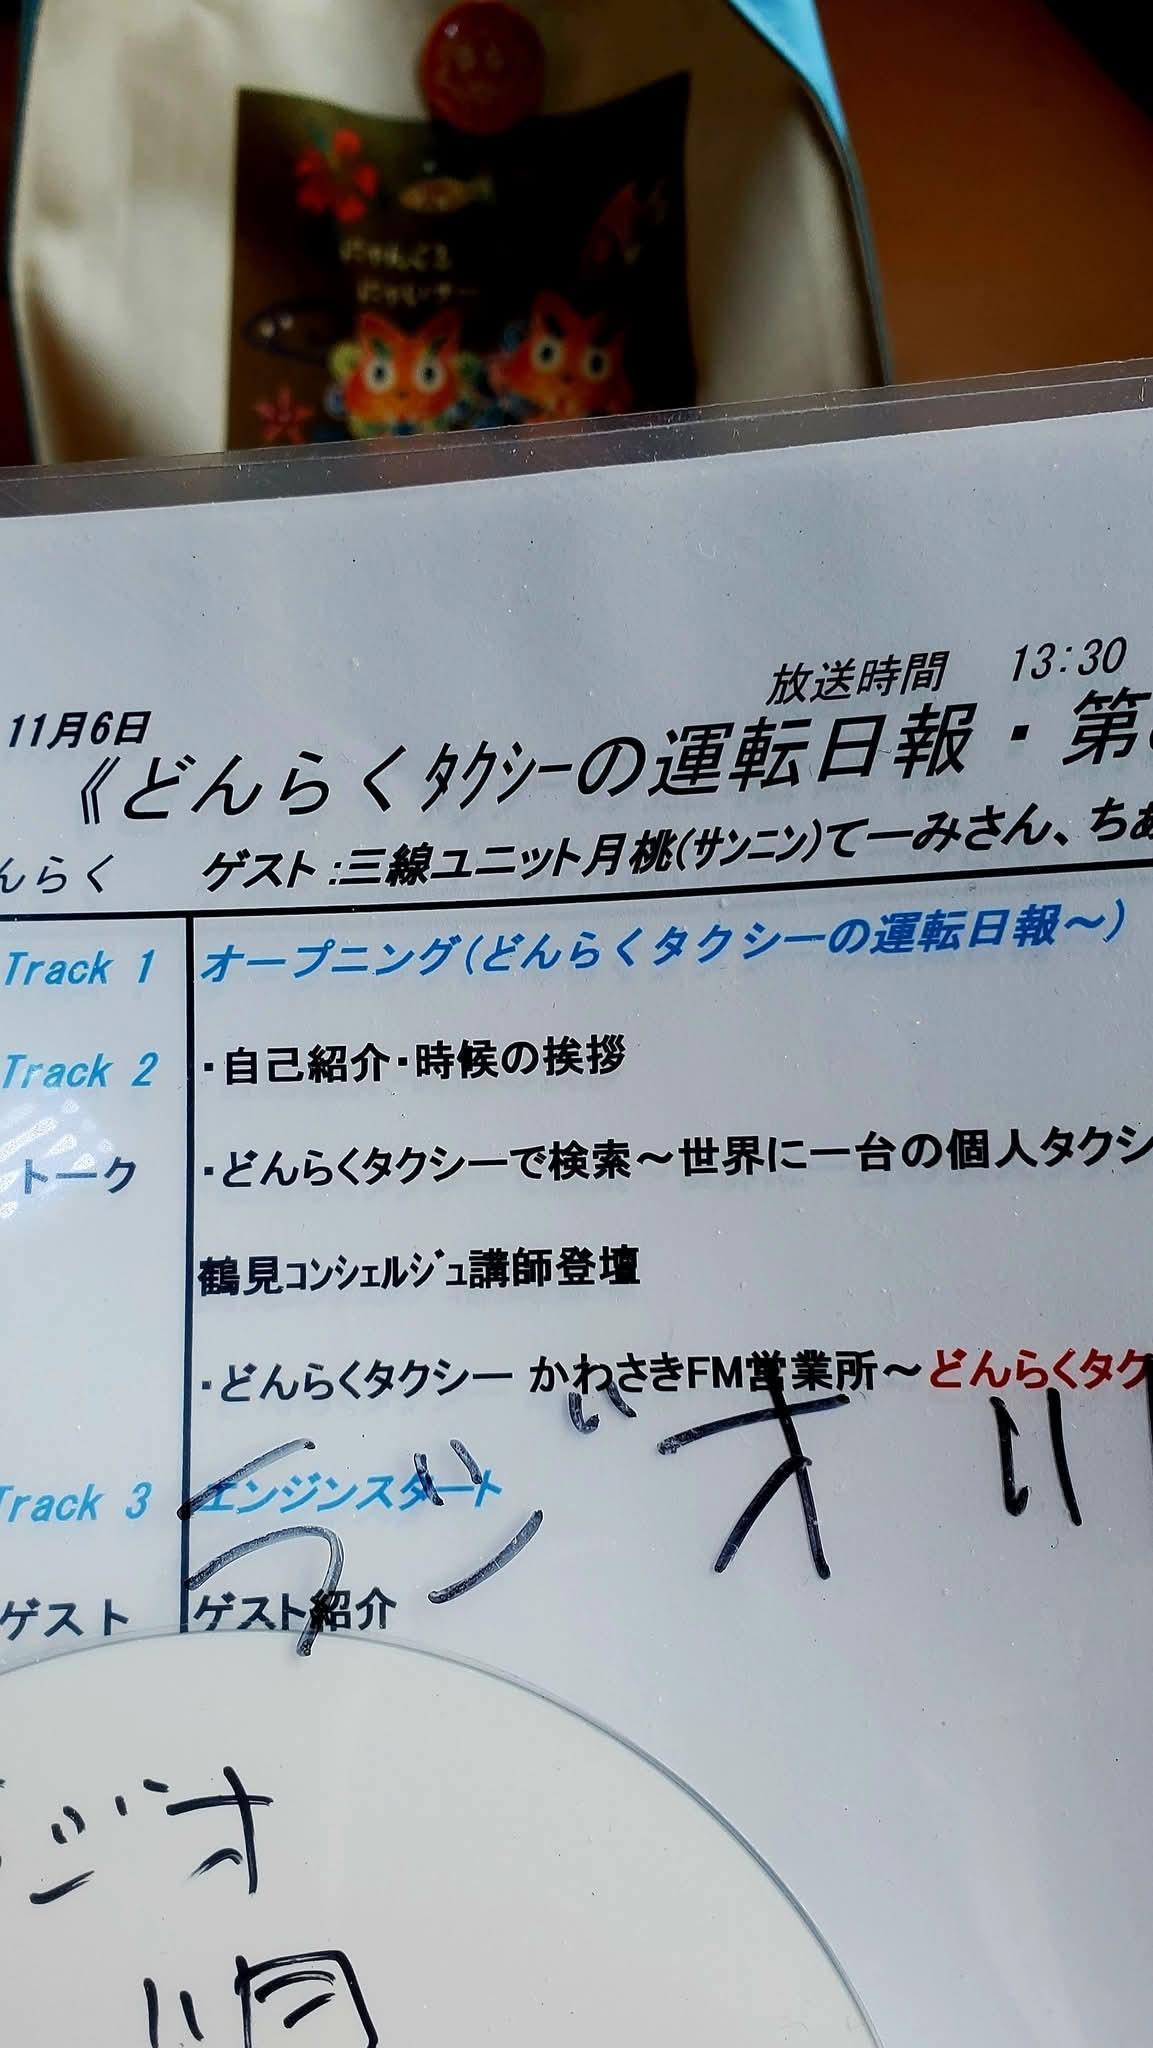 にゃんくる
にゃいサー
放送時間 13:30
11月6日
《どんらくﾀｸｼｰの運転日報・第
んらく ゲスト:三線ユニット月桃(サンニン)てーみさん、ちあ
Track 1 オープニング(どんらくタクシーの運転日報～)
Track 2 ・自己紹介・時候の挨拶
トーク ・どんらくタクシーで検索～世界に一台の個人タクシ
鶴見ｺﾝｼｪﾙｼﾞｭ講師登壇
・どんらくタクシー かわさきFM営業所～どんらくタク
Track 3 エンジンスタート
ゲスト ゲスト紹介
ラジオ
ジオ